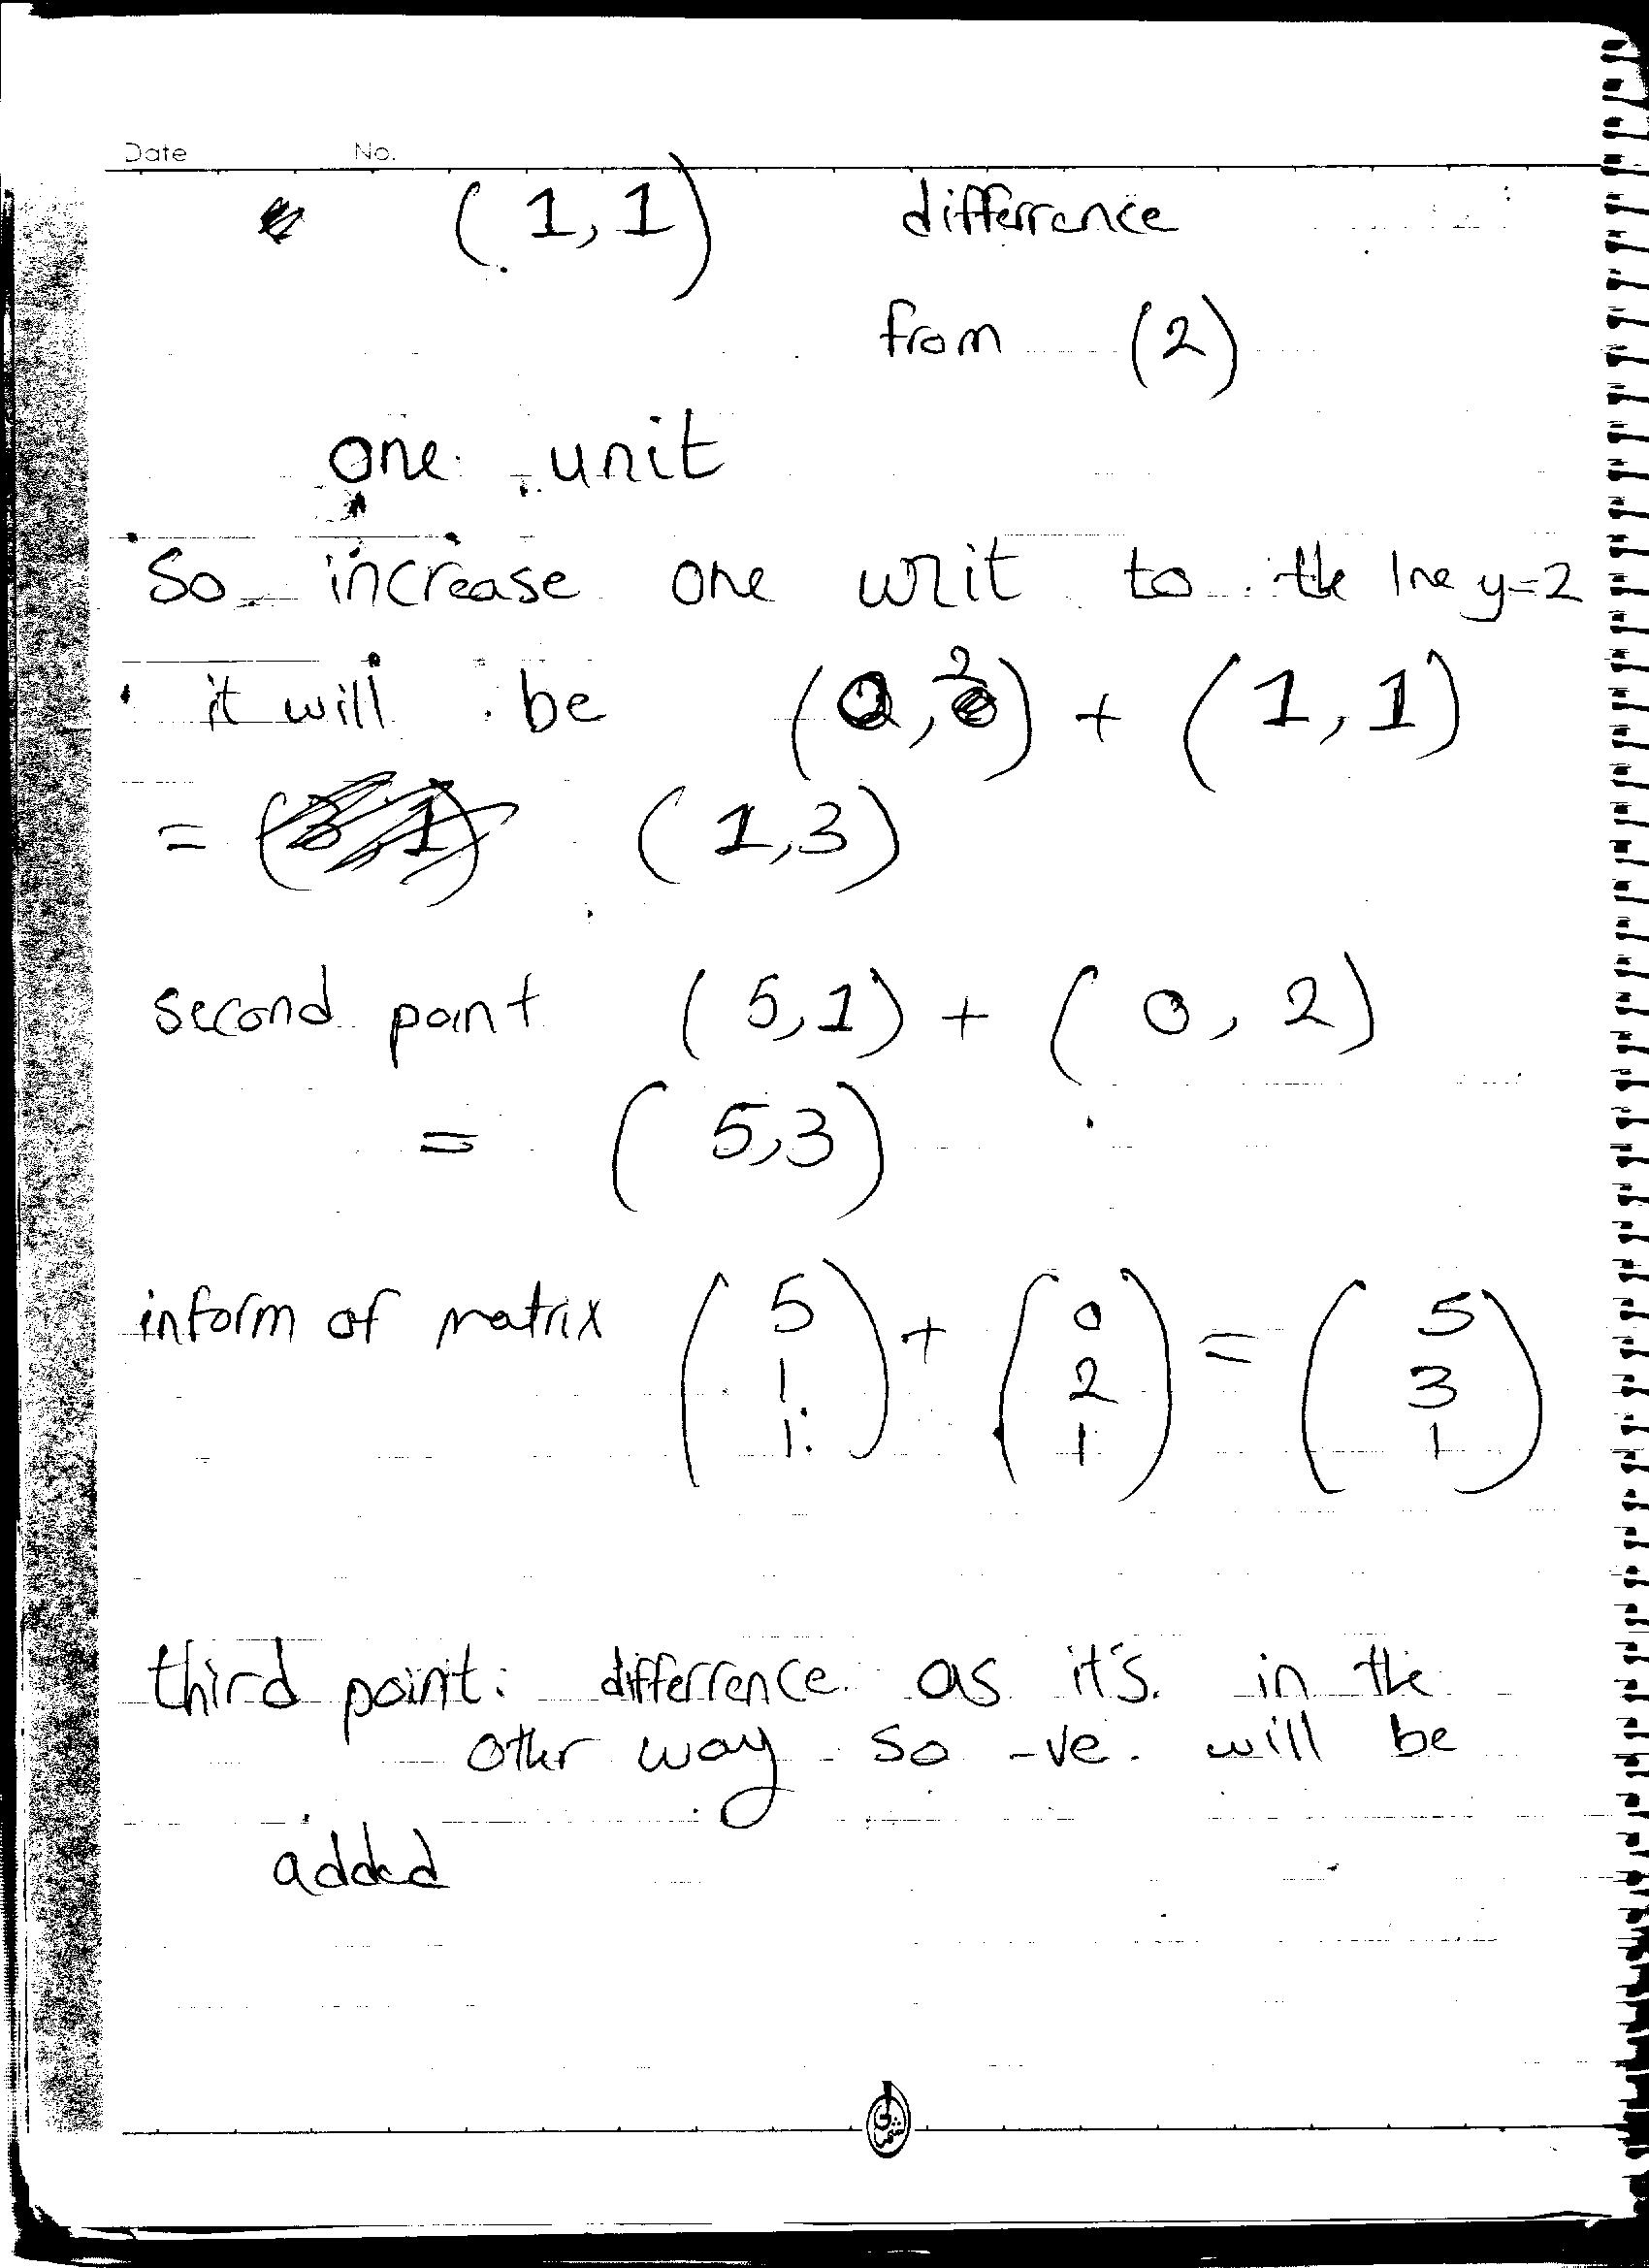 Date No.
(1,1) differrence
from (2)
one unit
So increase one unit to the line y=2
it will be (0,2) + (1,1)
= (1,3)
second point (5,1) + (0,2)
= (5,3)
inform of matrix (5 1 1) + (0 2 1) = (5 3 1)
third point: differrence as it's in the
other way so -ve will be
added